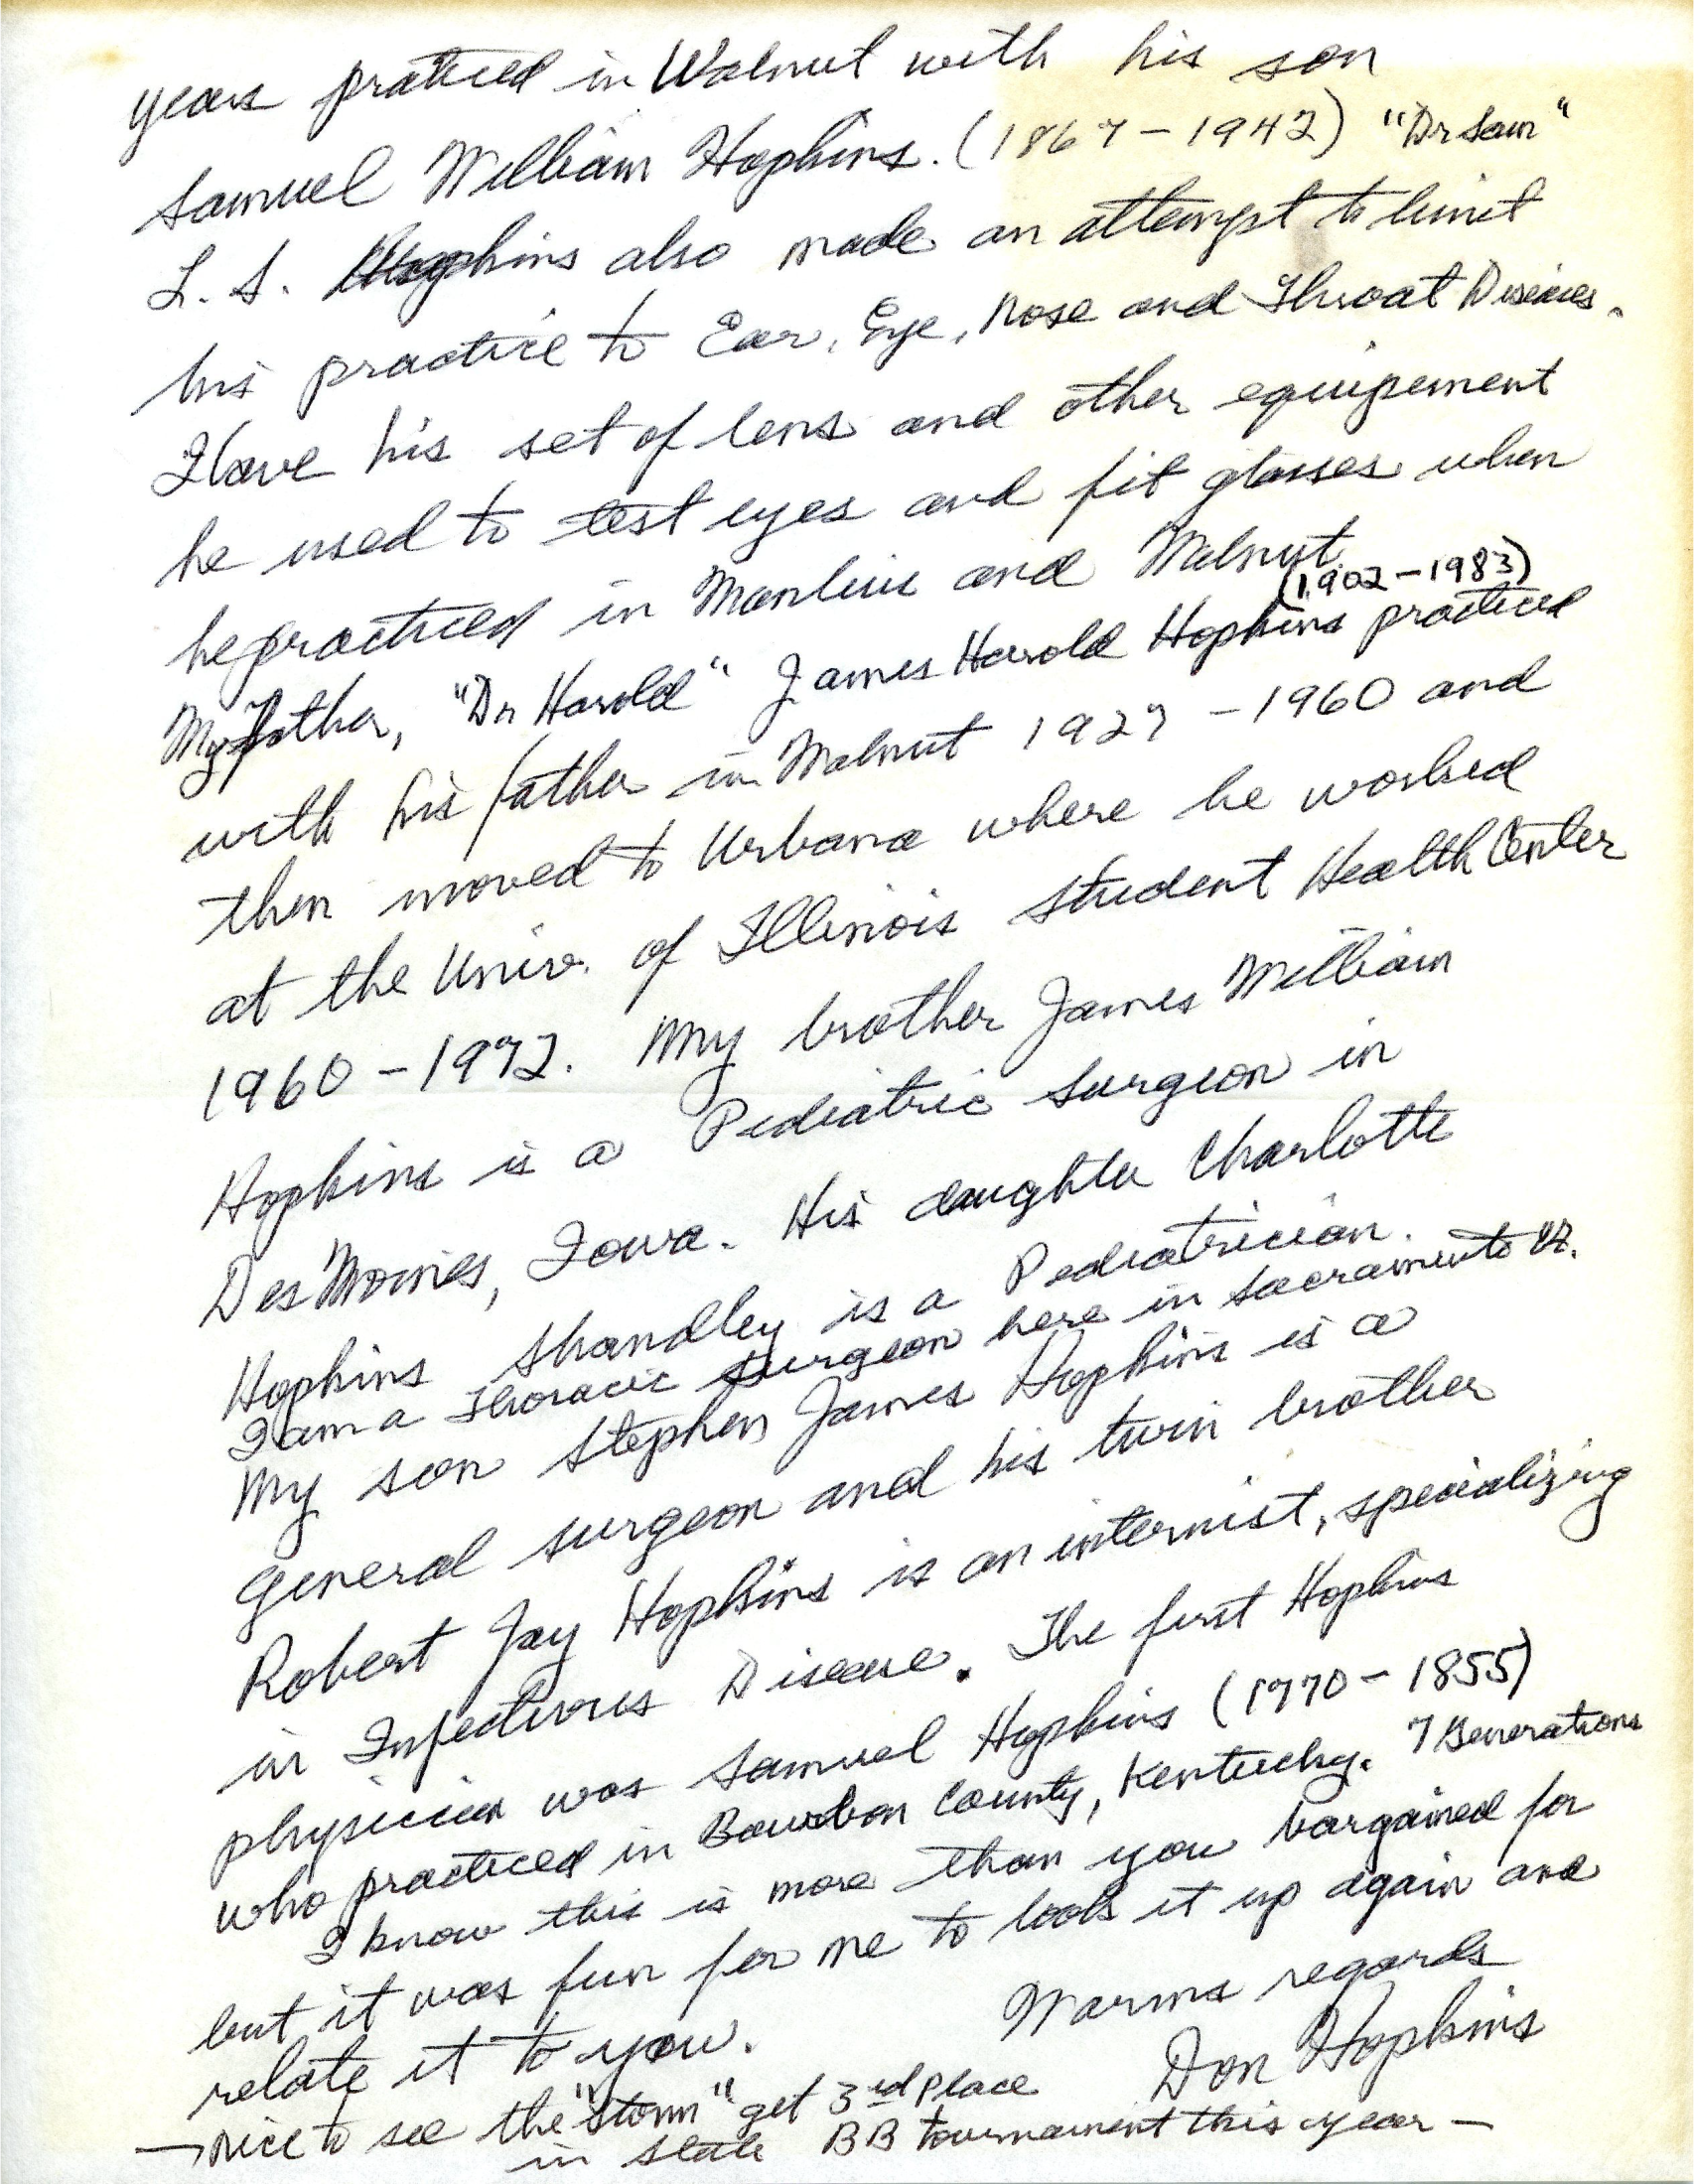 years practiced in Walnut with his son
Samuel William Hopkins. (1867-1942) "Dr Sam"
L. S. Hopkins also made an attempt to limit
his practice to Ear, Eye, Nose and Throat Diseases.
I have his set of lens and other equipement
he used to test eyes and fit glasses when
he practiced in Manlius and Walnut.
(1902-1983)
My father, "Dr Harold" James Harold Hopkins practiced
with his father in Walnut 1927 - 1960 and
then moved to Urbana where he worked
at the Univ. of Illinois Student Health Center
1960 - 1972. My brother James William
Hopkins is a Pediatric Surgeon in
Des Moines, Iowa. His daughter Charlotte
Hopkins Shandley is a Pediatrician.
I am a Thoracic Surgeon here in Sacramento
My son Stephen James Hopkins is a
general surgeon and his twin brother
Robert Jay Hopkins is an internist, specializing
in Infectious Disease. The first Hopkins
physician was Samuel Hopkins (1770-1855)
who practiced in Bourbon County, Kentucky. 7 Generations
I know this is more than you bargained for
but it was fun for me to look it up again and
relate it to you.
Warms regards
Don Hopkins
— nice to see the "Storm" get 3rd Place
in state BB tournament this year —